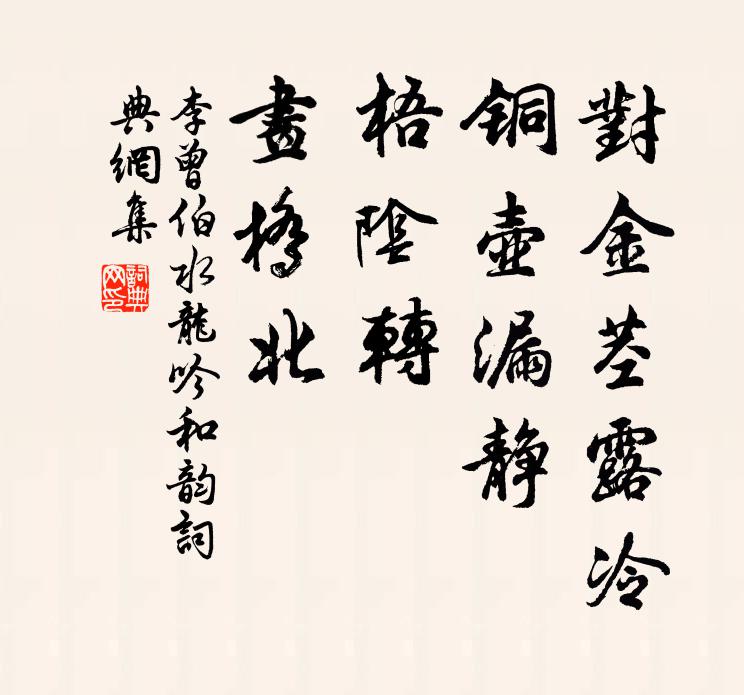 對金莖露冷
銅壺漏静
梧陰轉
畫橋北
李曾伯水龍吟和韵詞
典網集
詞典
网印